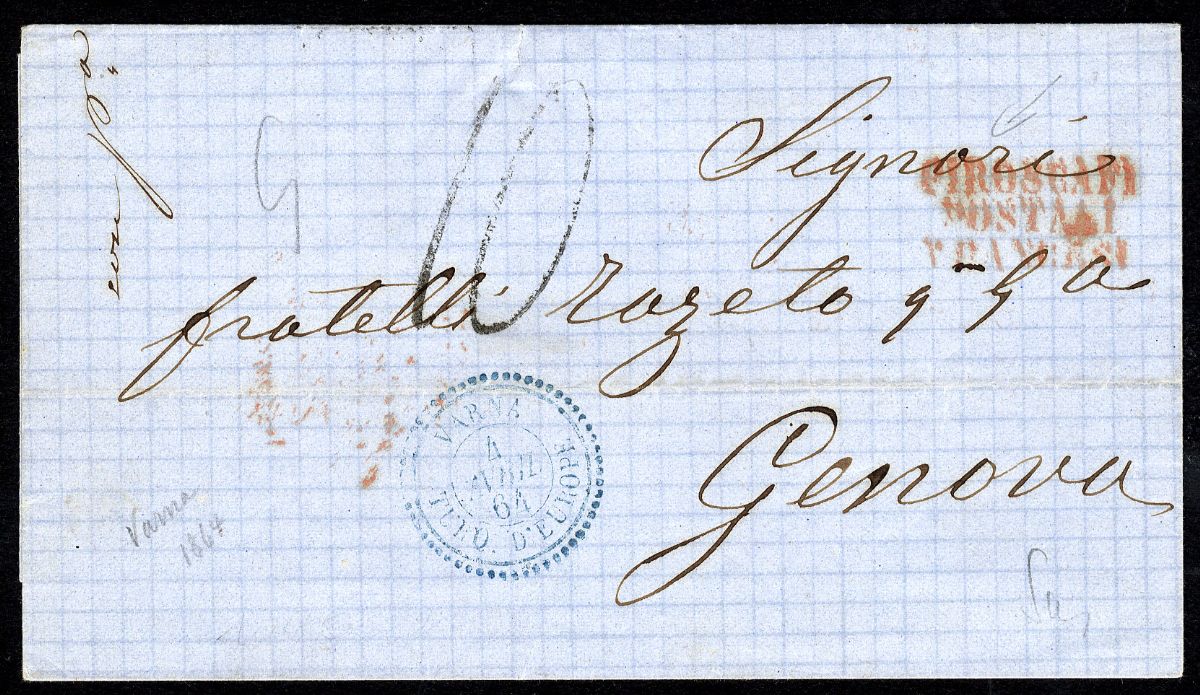 con p.a
10
Signori
PIROSCAFI
POSTALI
FRANCESI
fratelli Rozeto q. G.o
VARNA
4
AVRIL
64
TURQ. D'EUROPE
Genova
Varna
1864